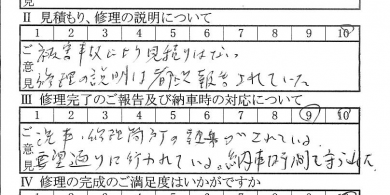 見
Ⅱ 見積もり、修理の説明について
1 2 3 4 5 6 7 8 9 10
ご意見
被害事故により見積りはない
修理の説明は都度報告されていた
Ⅲ 修理完了のご報告及び納車時の対応について
1 2 3 4 5 6 7 8 9 10
ご意見
洗車・修理箇所の説明がされている
要望通りに行われている。納車は時間を守られた
Ⅳ 修理の完成のご満足度はいかがですか